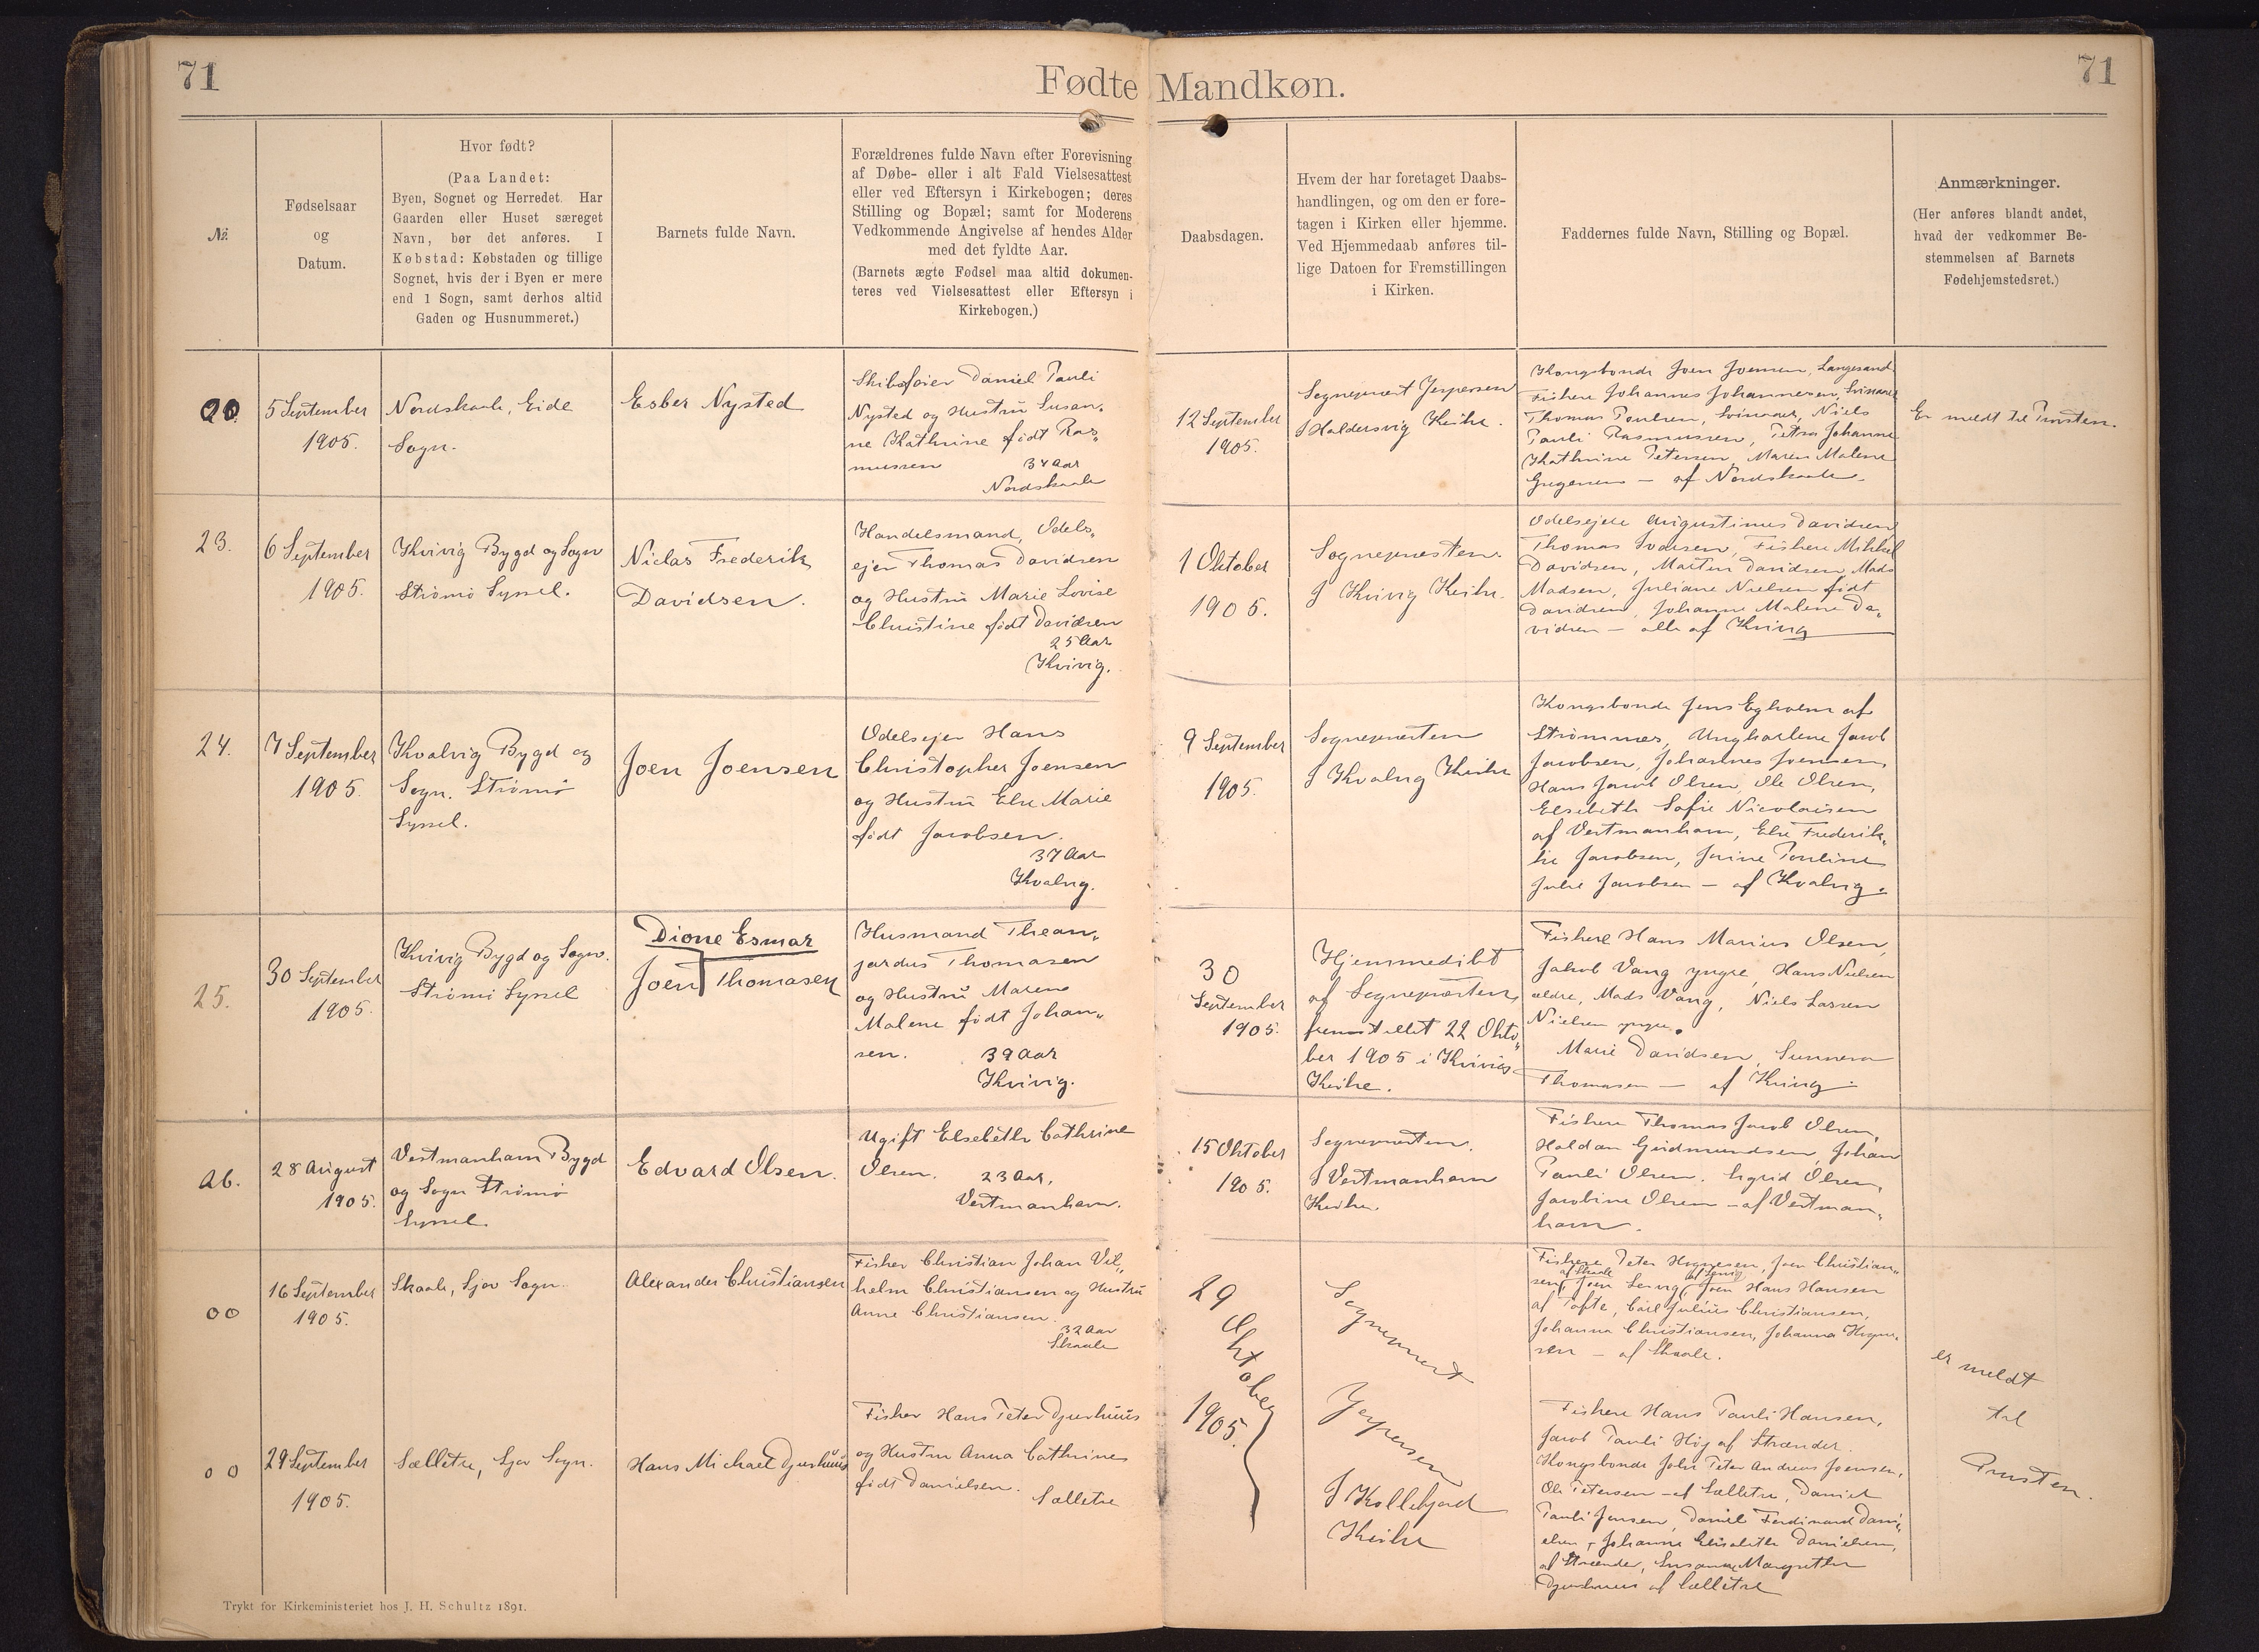 71
Fødte Mandkøn.
71
№
Fødselsaar
og
Datum.
Hvor født?
(Paa Landet:
Byen, Sognet og Herredet. Har
Gaarden eller Huset særeget
Navn, bør det anføres. I
Købstad: Købstaden og tillige
Sognet, hvis der i Byen er mere
end 1 Sogn, samt derhos altid
Gaden og Husnummeret.)
Barnets fulde Navn.
Forældrenes fulde Navn efter Forevisning
af Døbe- eller i alt Fald Vielsesattest
eller ved Eftersyn i Kirkebogen; deres
Stilling og Bopæl; samt for Moderens
Vedkommende Angivelse af hendes Alder
med det fyldte Aar.
(Barnets ægte Fødsel maa altid dokumen-
teres ved Vielsesattest eller Eftersyn i
Kirkebogen.)
Daabsdagen.
Hvem der har foretaget Daabs-
handlingen, og om den er fore-
tagen i Kirken eller hjemme.
Ved Hjemmedaab anføres til-
lige Datoen for Fremstillingen
i Kirken.
Faddernes fulde Navn, Stilling og Bopæl.
Anmærkninger.
(Her anføres blandt andet,
hvad der vedkommer Be-
stemmelsen af Barnets
Fødehjemstedsret.)
5 September
1905.
Nordskaale, Eide
Sogn.
Esber Nysted
Daniel Pauli
Nysted og Hustru Susan-
ne Kathrine født Ras-
mussen 34 Aar
Nordskaale
12 September
1905.
Sognepræst Jespersen
I Haldersvig Kirke.
Kongsbonde Joen Joensen, Langesand
Fisker Johannes Johannesen, Svinaaer
Thomas Poulsen, Svinaaer, Niels
Pauli Rasmussen, Petra Johanne
Kathrine Petersen, Maren Malene
Gregersen — af Nordskaale.
Er meldt til Provsten.
23.
6 September
1905.
Kvivig Bygd og Sogn
Strømø Syssel.
Niclas Frederik
Davidsen.
Handelsmand, Odels-
ejer Thomas Davidsen
og Hustru Marie Lovise
Christine født Davidsen
25 Aar
Kvivig.
1 Oktober
1905.
Sognepræsten.
I Kvivig Kirke.
Odelsejere Augustinus Davidsen
Thomas Joensen, Fiskere Mikkel
Davidsen, Martin Davidsen, Mads
Madsen, Juliane Nielsen født
Davidsen, Johanne Malene Da-
vidsen — alle af Kvivig
24.
7 September
1905.
Kvalvig Bygd og
Sogn. Strømø
Syssel.
Joen Joensen
Odelsejer Hans
Christopher Joensen
og Hustru Else Marie
født Jacobsen.
37 Aar
Kvalvig.
9 September
1905.
Sognepræsten
I Kvalvig Kirke
Kongsbonde Jens Egholm af
Strømnæs, Ungkarlene Jacob
Jacobsen, Johannes Joensen,
Hans Jacob Olsen, Ole Olsen,
Elsebeth Sofie Nicolaisen
af Vestmanhavn, Else Frederik-
ke Jacobsen, Joline Pouline
Julie Jacobsen — af Kvalvig.
25.
30 September
1905.
Kvivig Bygd og Sogn.
Strømø Syssel
Dione Esmar
Joen Thomasen
Husmand Thean-
jardus Thomasen
og Hustru Maren
Malene født Johan-
sen. 39 Aar
Kvivig.
30
September
1905.
Hjemmedøbt
af Sognepræsten,
fremstillet 22 Okto-
ber 1905 i Kvivigs
Kirke.
Fiskere Hans Marius Olsen,
Jakob Vang yngre, Hans Nielsen
ældre, Mads Vang, Niels Lassen
Nielsen yngre.
Marie Davidsen, Sunneva
Thomasen — af Kvivig.
26.
28 August
1905.
Vestmanhavn Bygd
og Sogn Strømø
Syssel.
Edvard Olsen.
Ugift Elsebeth Cathrine
Olsen. 23 Aar,
Vestmanhavn.
15 Oktober
1905.
Sognepræsten.
I Vestmanhavn
Kirke.
Fiskere Thomas Jacob Olsen,
Haldan Gudmundsen, Johan
Pauli Olsen. Sigrid Olsen,
Jacobine Olsen — af Vestman-
havn.
00
16 September
1905.
Skaale, Sjov Sogn.
Alexander Christiansen
Fisker Christian Johan Vil-
helm Christiansen og Hustru
Anne Christiansen.
32 Aar
Skaale
29
Oktober
1905.
Sognepræst
Jespersen
I Kollefjord
Kirke
Fiskere Peter Hognesen, Joen Christian-
af Skaale
sen, Joen Hans Hansen
af Tofte, Carl Julius Christiansen,
Johanna Christiansen, Johanna Hogne-
sen — af Skaale.
er meldt
til
Provsten.
00
29 September
1905.
Sælletre, Sjov Sogn.
Hans Michael Djurhuus
Fisker Hans Peter Djurhuus
og Hustru Anna Cathrine
født Danielsen.
Sælletre
Fiskere Hans Pauli Hansen,
Jacob Pauli Høj af Strænder.
Kongsbonde John Peter Andreas Joensen,
Ole Petersen — af Sælletre, Daniel
Pauli Jensen, Daniel Ferdinand Dani-
elsen, Johanne Elisabeth Danielsen,
af Strænder, Susanna Margrethe
Djurhuus af Sælletre
Trykt for Kirkeministeriet hos J. H. Schultz 1891.